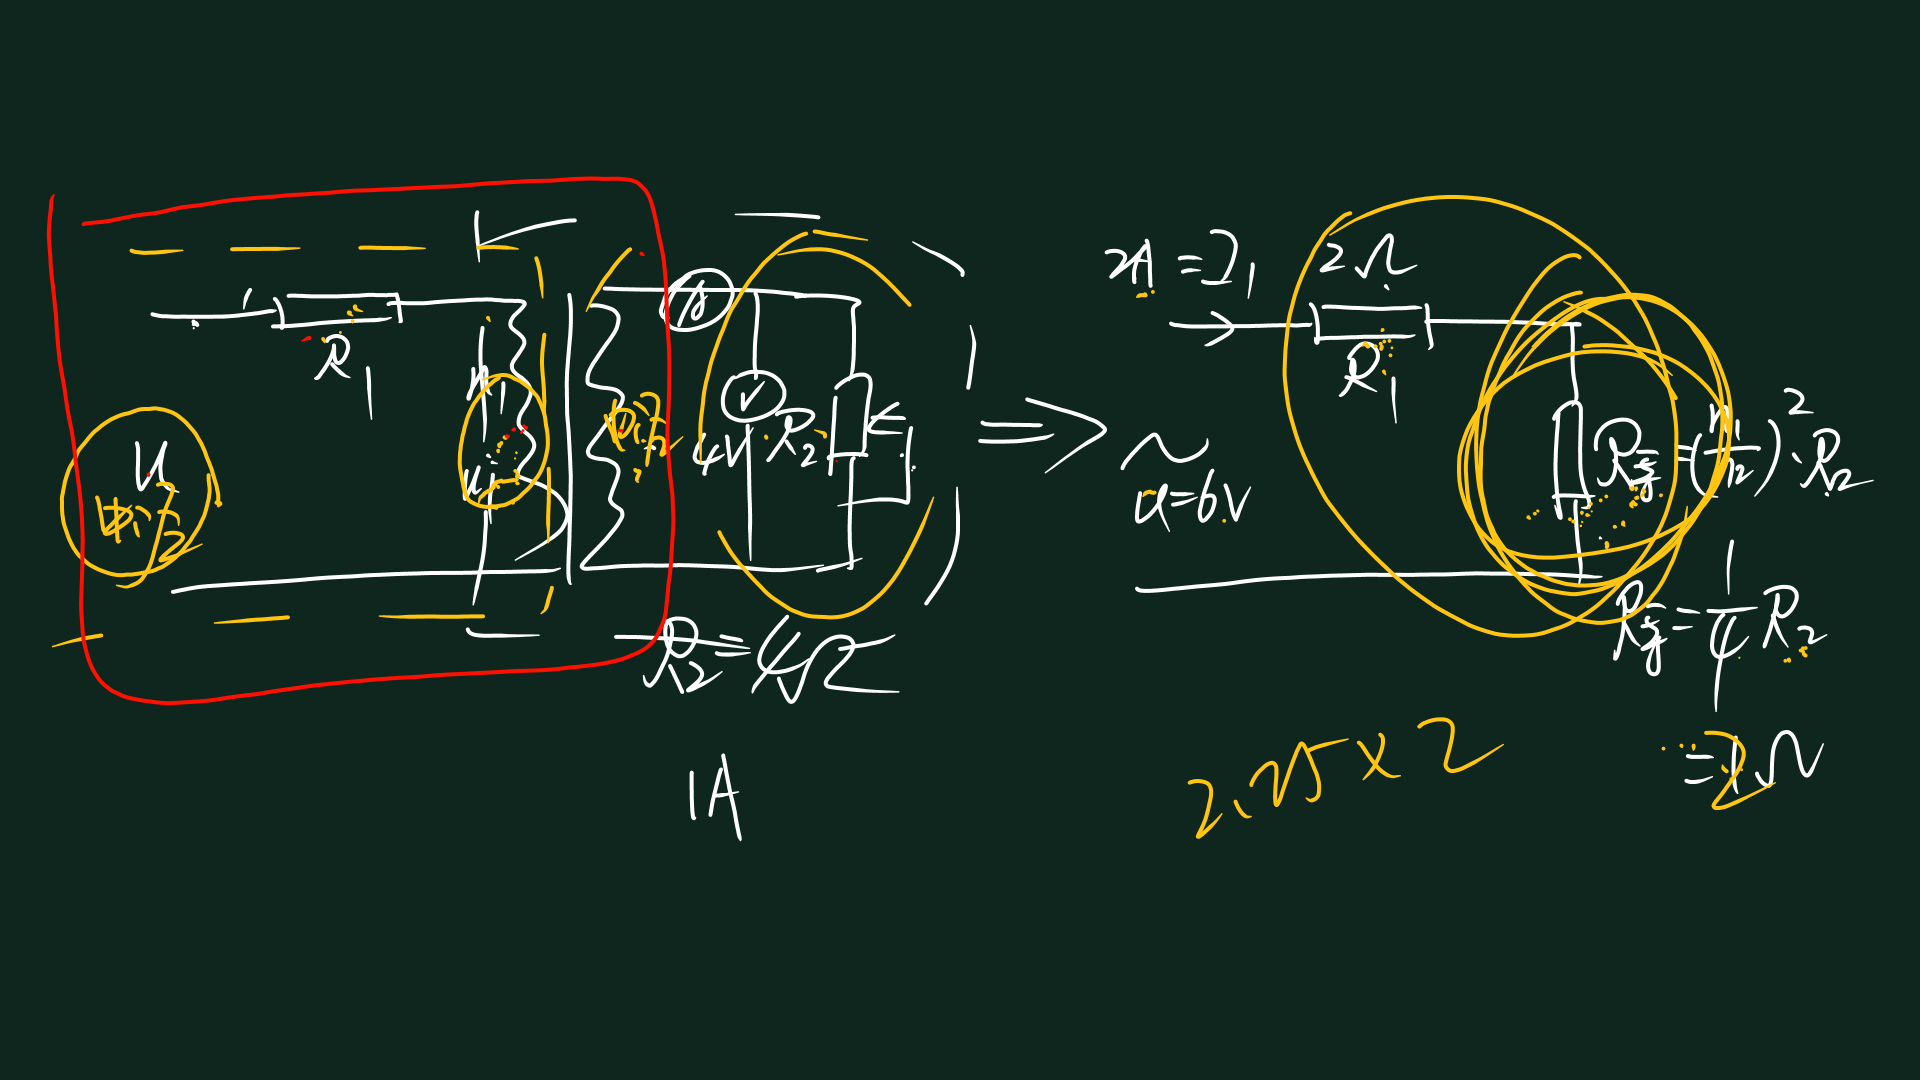 R₁
n₁
U
U₁
A
V
4V
R₂
R₂=4Ω
1A
2A=I₁
2Ω
R₁
~
u=6V
R等=(n₁/n₂)²·R₂
R等=1/4 R₂
=1Ω
2
2.25×2